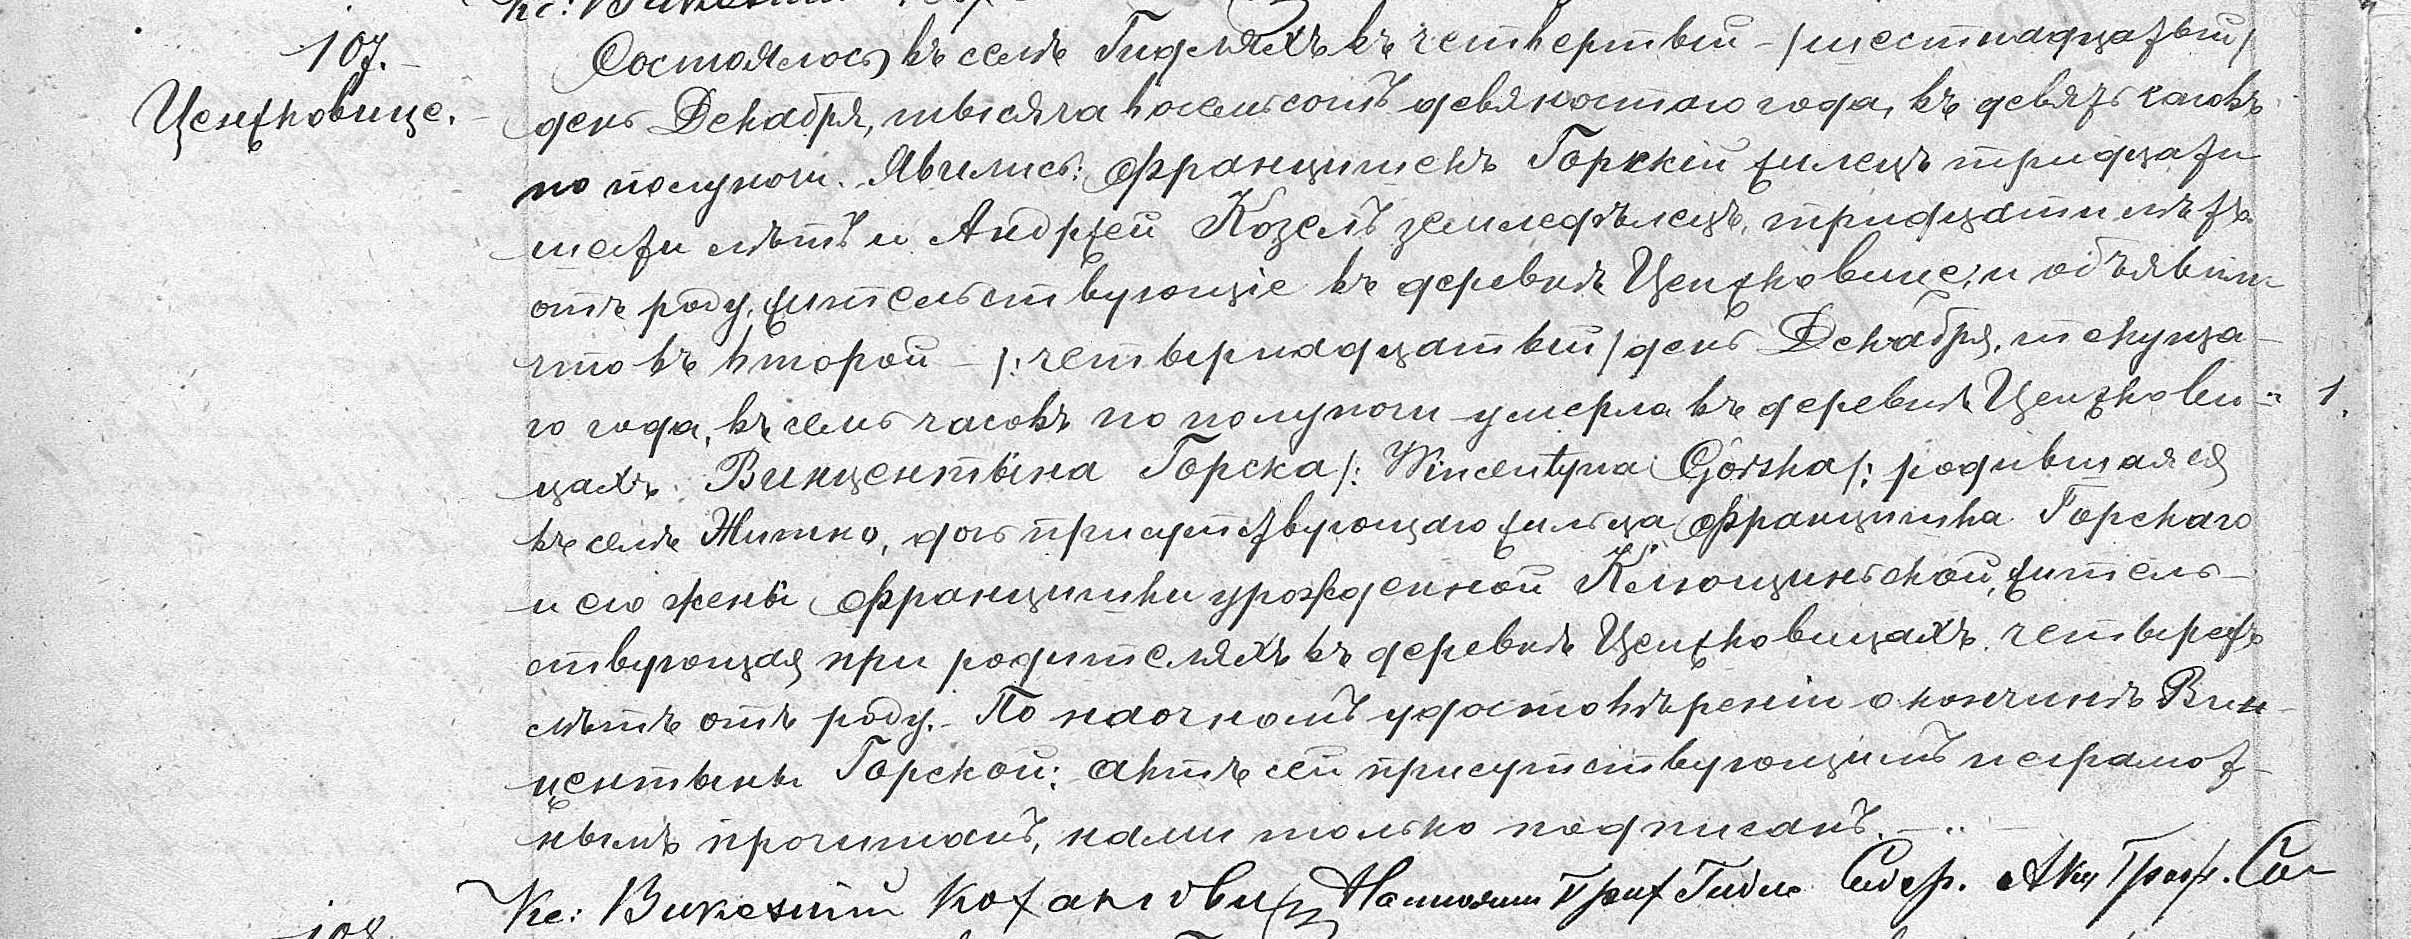 107.
Ценжковице.
Состоялось въ селѣ Гидляхъ въ четвертый /шестнадцатый/
день Декабря, тысяча восемьсотъ девяностого года, въ девять часовъ
по полуночи. Явились: Францишекъ Горскій жилецъ тридцати
шести лѣтъ и Андржей Козелъ земледѣлецъ, тридцати лѣтъ
отъ роду, жительствующіе въ деревнѣ Ценжковице, и объявили
что въ второй /: четырнадцатый / день Декабря, текуща-
го года, въ семь часовъ по полуночи умерла въ деревнѣ Ценжкови- 1.
цахъ Винцентына Горска /: Wincentyna Górska /: родившаяся
въ селѣ Житно, дочь присутствующаго жильца Францишка Горскаго
и его жены Францишки урожденной Клющинской, житель-
ствующая при родителяхъ въ деревнѣ Ценжковицахъ, четырехъ
лѣтъ отъ роду. По наочномъ удостовѣреніи о кончинѣ Вин-
центыны Горской: актъ сей присутствующимъ неграмот-
нымъ прочитанъ, нами только подписанъ.
Кс: Викентій Коханович
108.